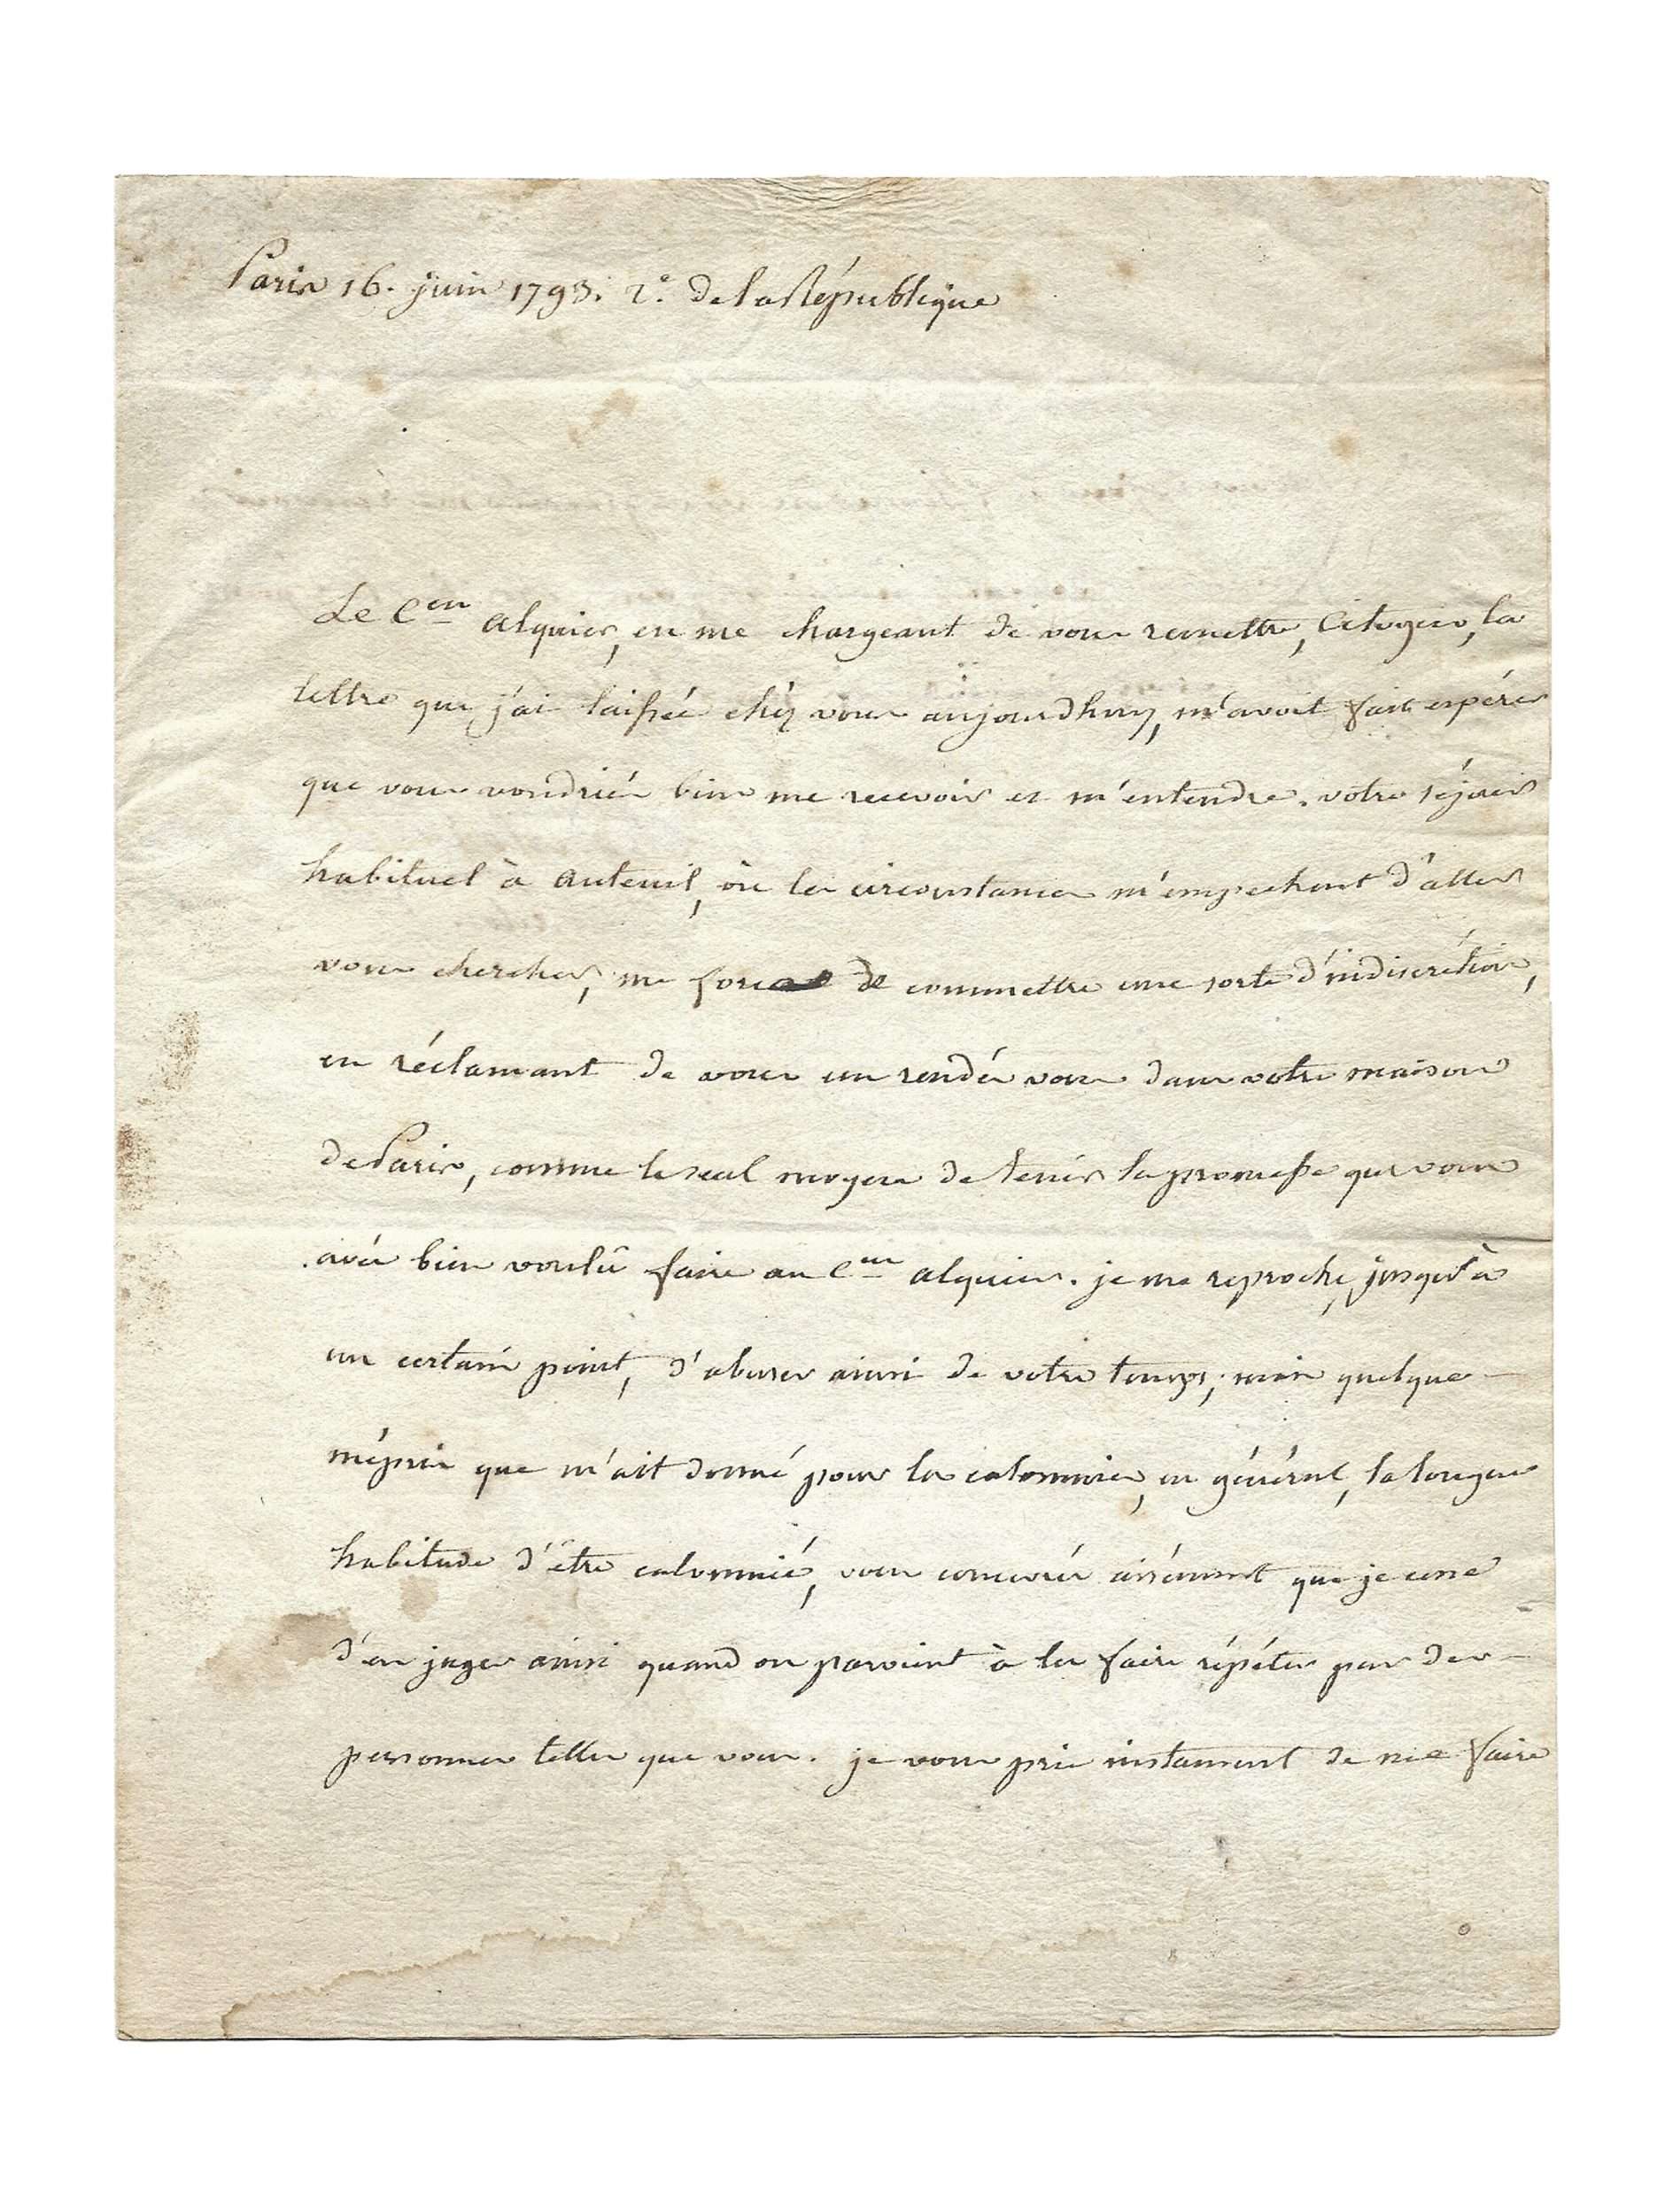 Paris 16. juin 1793. 2e. de la République
Le Cen alquier, en me chargeant de vous remettre, Citoyen, la
lettre que j'ai laissée chéz vous aujourdhuy, m'avoit fait espérer
que vous voudriés bien me recevoir et m'entendre. votre séjour
habituel à auteuil, où les circonstances m'empechent d'aller
vous chercher, me force de commettre une sorte d'indiscrétion,
en réclamant de vous un rendés vous dans votre maison
de Paris, comme le seul moyen de tenir la promesse que vous
avés bien voulû faire au Cen alquier. je me reproche, jusqu'à
un certain point, d'abuser ainsi de votre temps; mais quelque
mépris que m'ait donné pour les calomnies, en général, la longue
habitude d'être calomnié, vous concevés aisément que je cesse
d'en juger ainsi quand on parvient à les faire répéter par des
personnes telles que vous. je vous prie instament de me faire